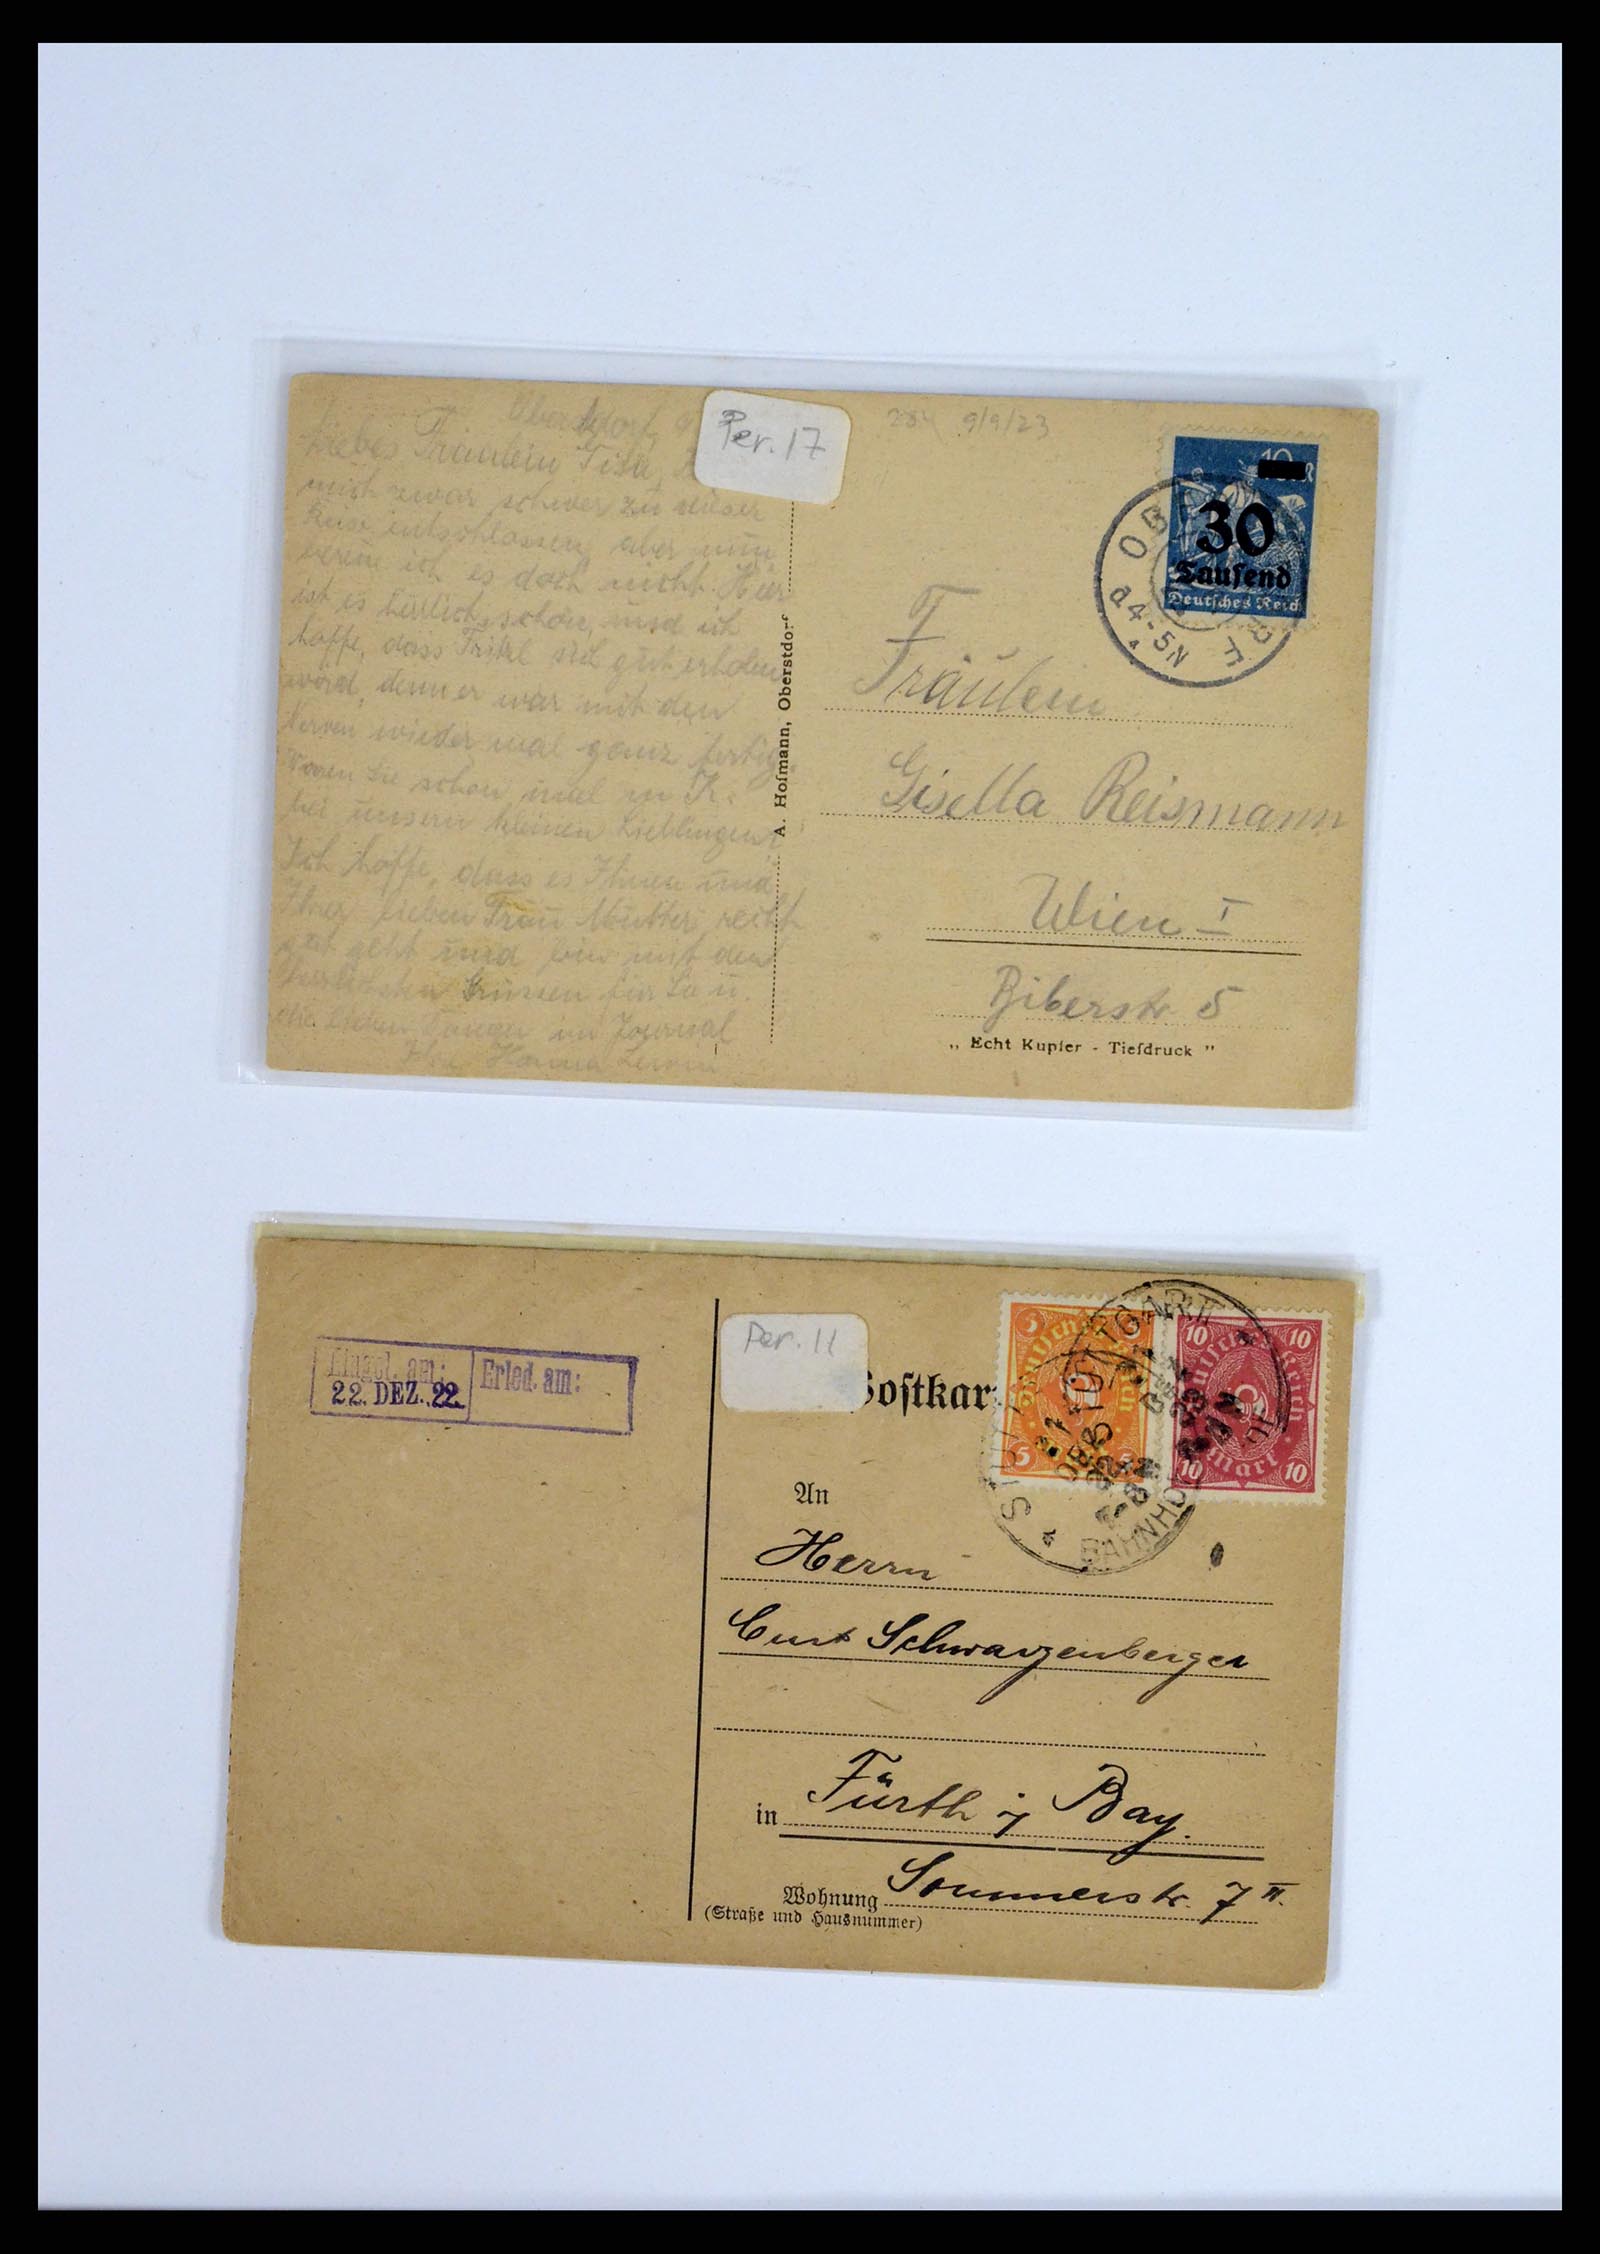 Per. 17
284 9/9/23
Oberstdorf,
Liebes Fräulein Gisa,
mich zwar schwer zu dieser
Reise entschlossen, aber nun
bereue ich es doch nicht. Hier
ist es herrlich schön, und ich
hoffe, dass Fritzl sich gut erholen
wird, denn er war mit den
Nerven wieder mal ganz fertig.
Waren Sie schon mal in
bei unsern kleinen Lieblingen?
Ich hoffe, dass es Ihnen und
Ihrer lieben Frau Mutter recht
gut geht und bin mit den
herzlichsten Grüssen für Sie u.
die lieben im Journal
Ihre Hanna
A. Hofmann, Oberstdorf
10
30
Tausend
Deutsches Reich
4-5N
Fräulein
Gisella Reismann
Wien I
Biberstr. 5
„ Echt Kupfer - Tiefdruck "
Per. 11
Eingel. am: Erled. am:
22. DEZ. 22.
Postkar
5 5
5 5
10 10
10 10
Mark
STUTTGART
7-8
BAHNHOF
An
Herrn
Curt Schwarzenberger
in Fürth i/ Bay.
Wohnung Sommerstr. 7 II.
(Straße und Hausnummer)